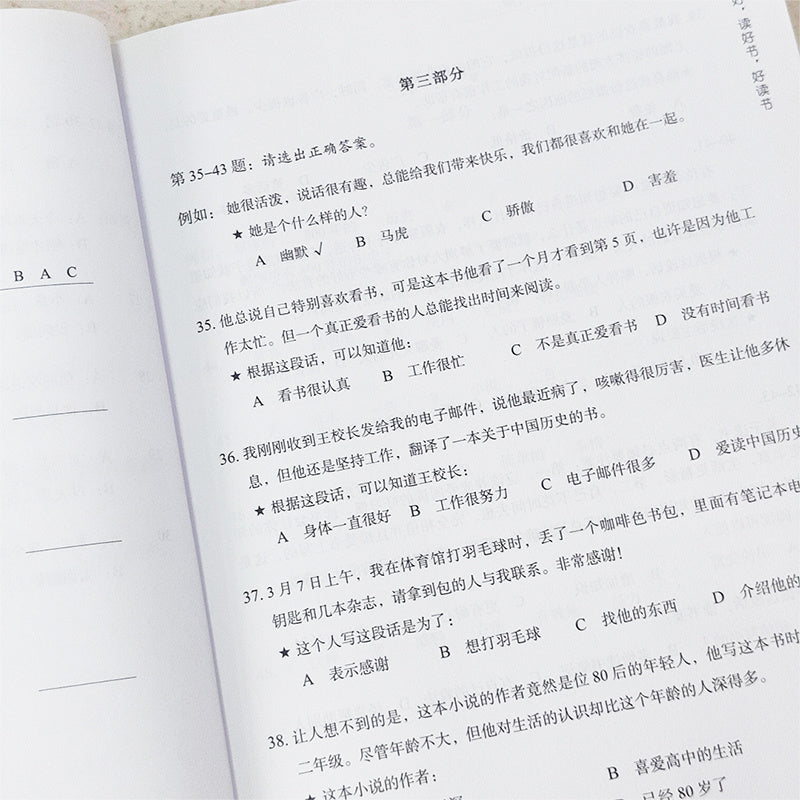 B A C
好，读好书，好读书
第三部分
第35-43题：请选出正确答案。
例如：她很活泼，说话很有趣，总能给我们带来快乐，我们都很喜欢和她在一起。
★她是个什么样的人？
A 幽默 √ B 马虎 C 骄傲 D 害羞
35. 他总说自己特别喜欢看书，可是这本书他看了一个月才看到第5页，也许是因为他工
作太忙。但一个真正爱看书的人总能找出时间来阅读。
★根据这段话，可以知道他：
A 看书很认真 B 工作很忙 C 不是真正爱看书 D 没有时间看书
36. 我刚刚收到王校长发给我的电子邮件，说他最近病了，咳嗽得很厉害，医生让他多休
息，但他还是坚持工作，翻译了一本关于中国历史的书。
★根据这段话，可以知道王校长：
A 身体一直很好 B 工作很努力 C 电子邮件很多 D 爱读中国历史
37. 3月7日上午，我在体育馆打羽毛球时，丢了一个咖啡色书包，里面有笔记本电
钥匙和几本杂志，请拿到包的人与我联系。非常感谢！
★这个人写这段话是为了：
A 表示感谢 B 想打羽毛球 C 找他的东西 D 介绍他的
38. 让人想不到的是，这本小说的作者竟然是位80后的年轻人，他写这本书时
二年级。尽管年龄不大，但他对生活的认识却比这个年龄的人深得多。
★这本小说的作者：
B 喜爱高中的生活
已经80岁了